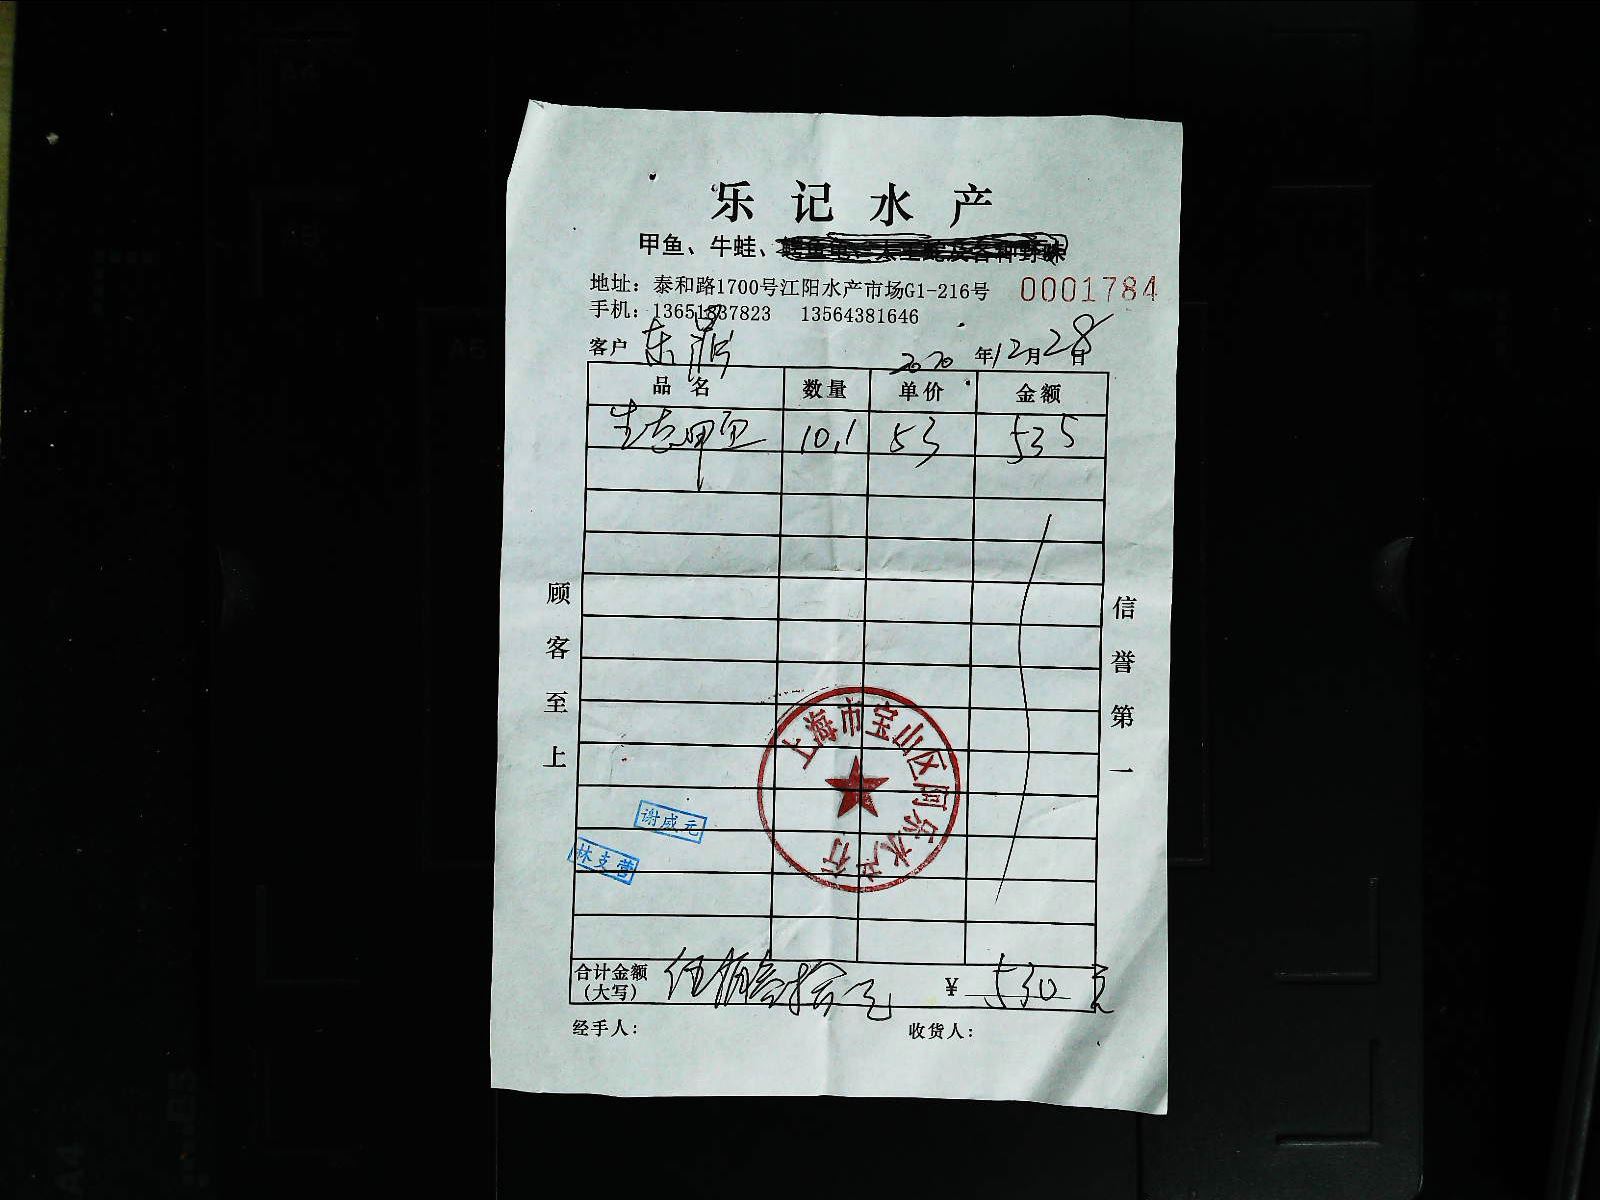 乐记水产
甲鱼、牛蛙、
地址：泰和路1700号江阳水产市场G1-216号 0001784
手机：13651837823 13564381646
客户 东湖 2020 年12月28日
品名 数量 单价 金额
生态甲鱼 10.1 53 535
顾客至上
信誉第一
上海市宝山区阿乐水产行
谢咸元
林支营
合计金额（大写） 伍佰叁拾元 ¥ 530元
经手人： 收货人：